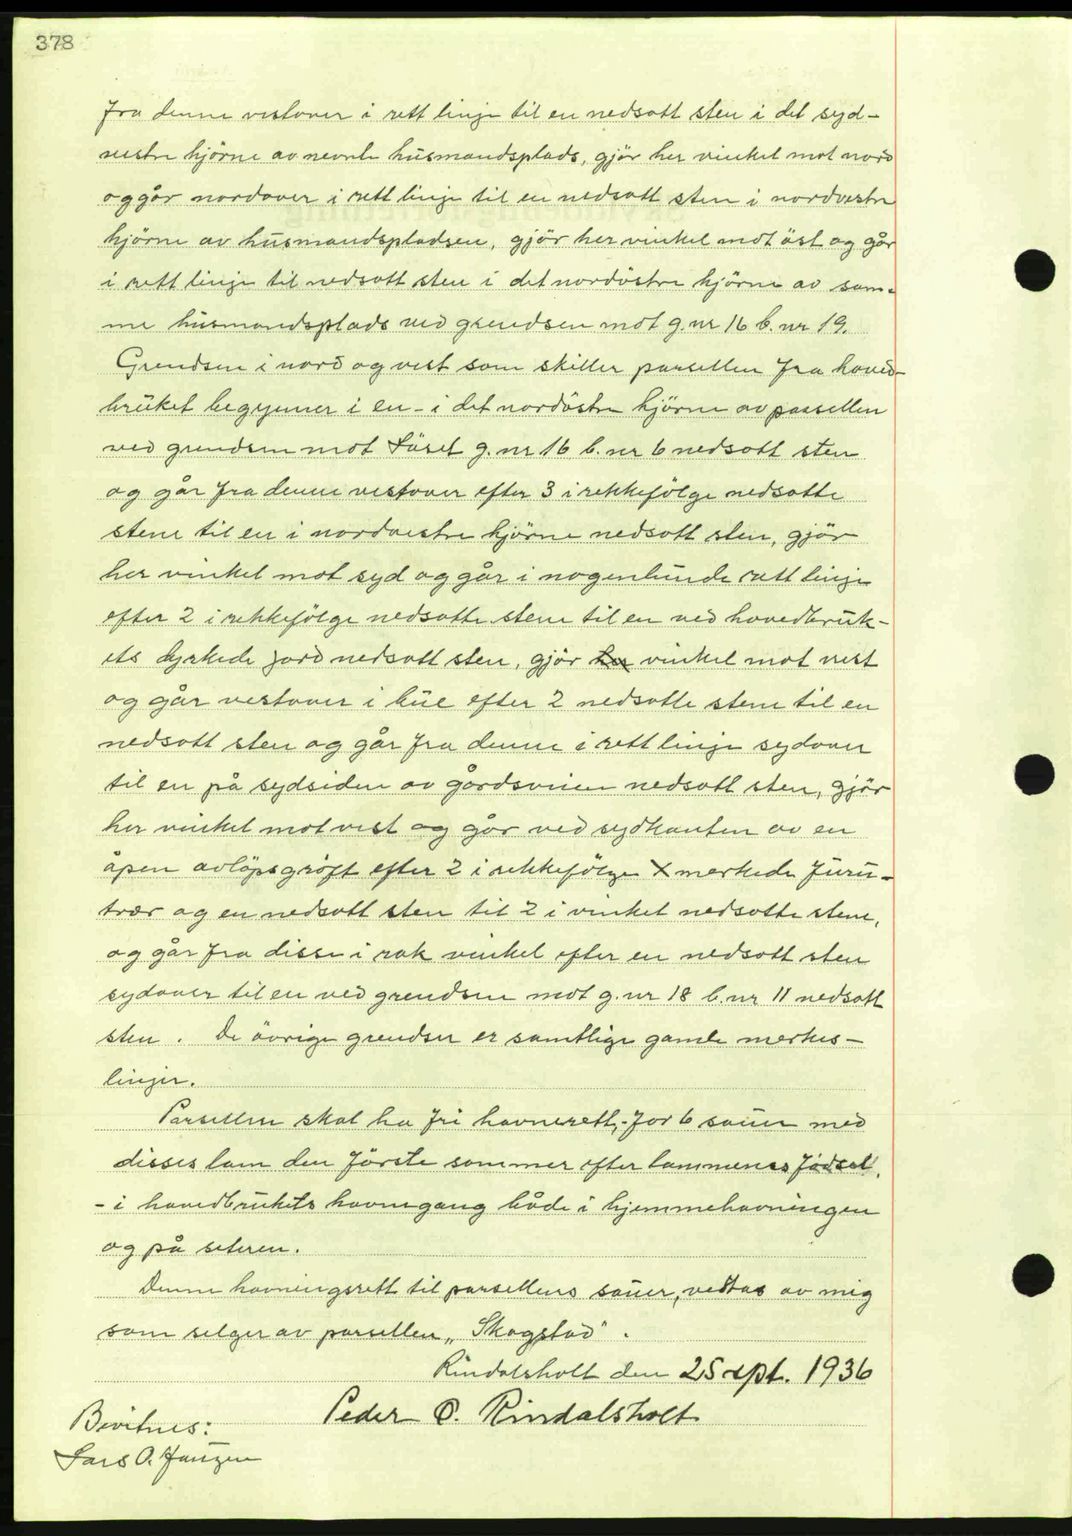 378
fra denne vestover i rett linje til en nedsatt sten i det syd-
vestre hjörne av nevnte husmandsplads, gjör her vinkel mot nord
og går nordover i rett linje til en nedsatt sten i nordvestre
hjörne av husmandspladsen, gjör her vinkel mot öst og går
i rett linje til nedsatt sten i det nordöstre hjörne av sam-
me husmandsplads ved grendsen mot g.nr 16 b.nr 19.
Grendsen i nord og vest som skiller parsellen fra hoved-
bruket begynner i en - i det nordöstre hjörne av parsellen
ved grendsen mot g.nr 16 b.nr 6 nedsatt sten
og går fra denne vestover efter 3 i rekkefölge nedsatte
stene til en i nordvestre hjörne nedsatt sten, gjör
her vinkel mot syd og går i nogenlunde rett linje
efter 2 i rekkefölge nedsatte stene til en ved hovedbruk-
ets dyrkede jord nedsatt sten, gjör her vinkel mot vest
og går vestover i bue efter 2 nedsatte stene til en
nedsatt sten og går fra denne i rett linje sydover
til en på sydsiden av gårdsveien nedsatt sten, gjör
her vinkel mot vest og går ved sydkanten av en
åpen avlöpsgröft efter 2 i rekkefölge X merkede furu-
trær og en nedsatt sten til 2 i vinkel nedsatte stene,
og går fra disse i rak vinkel efter en nedsatt sten
sydover til en ved grendsen mot g.nr 18 b.nr 11 nedsatt
sten. De övrige grendser er samtlige gamle merkes-
linjer.
Parsellen skal ha fri havnerett, - for 6 sauer med
disses lam den förste sommer efter lammenes födsel,
- i hovedbrukets havnegang både i hjemmehavningen
og på seteren.
Denne havningsrett til parsellens sauer, vedtas av mig
som selger av parsellen „Skogstad".
Rindalsholt den 25 sept. 1936
Peder O. Rindalsholt
Bevitnes:
Lars O.